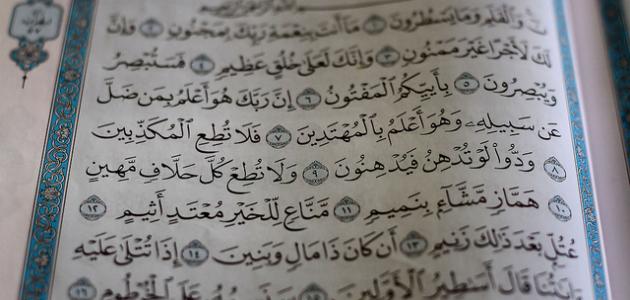 نٓ وَٱلْقَلَمِ وَمَا يَسْطُرُونَ ١ مَآ أَنتَ بِنِعْمَةِ رَبِّكَ بِمَجْنُونٍ ٢ وَإِنَّ
لَكَ لَأَجْرًا غَيْرَ مَمْنُونٍ ٣ وَإِنَّكَ لَعَلَىٰ خُلُقٍ عَظِيمٍ ٤ فَسَتُبْصِرُ
وَيُبْصِرُونَ ٥ بِأَييِّكُمُ ٱلْمَفْتُونُ ٦ إِنَّ رَبَّكَ هُوَ أَعْلَمُ بِمَن ضَلَّ
عَن سَبِيلِهِۦ وَهُوَ أَعْلَمُ بِٱلْمُهْتَدِينَ ٧ فَلَا تُطِعِ ٱلْمُكَذِّبِينَ
٨ وَدُّوا۟ لَوْ تُدْهِنُ فَيُدْهِنُونَ ٩ وَلَا تُطِعْ كُلَّ حَلَّافٍ مَّهِينٍ
١٠ هَمَّازٍ مَّشَّآءٍۭ بِنَمِيمٍ ١١ مَّنَّاعٍ لِّلْخَيْرِ مُعْتَدٍ أَثِيمٍ ١٢
عُتُلٍّۭ بَعْدَ ذَٰلِكَ زَنِيمٍ ١٣ أَن كَانَ ذَا مَالٍ وَبَنِينَ ١٤ إِذَا تُتْلَىٰ عَلَيْهِ
ءَايَٰتُنَا قَالَ أَسَٰطِيرُ ٱلْأَوَّلِينَ ١٥ سَنَسِمُهُۥ عَلَى ٱلْخُرْطُومِ ١٦